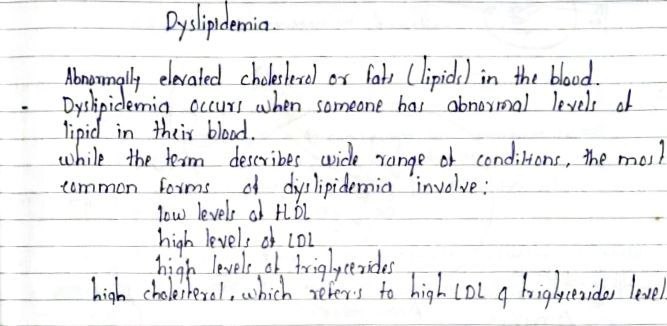 Dyslipidemia.
Abnormally elevated cholesterol or fats (lipids) in the blood.
- Dyslipidemia occurs when someone has abnormal levels of
lipid in their blood.
while the term describes wide range of conditions, the most
common forms of dyslipidemia involve:
low levels of HDL
high levels of LDL
high levels of triglycerides
high cholesterol, which refers to high LDL & triglycerides level